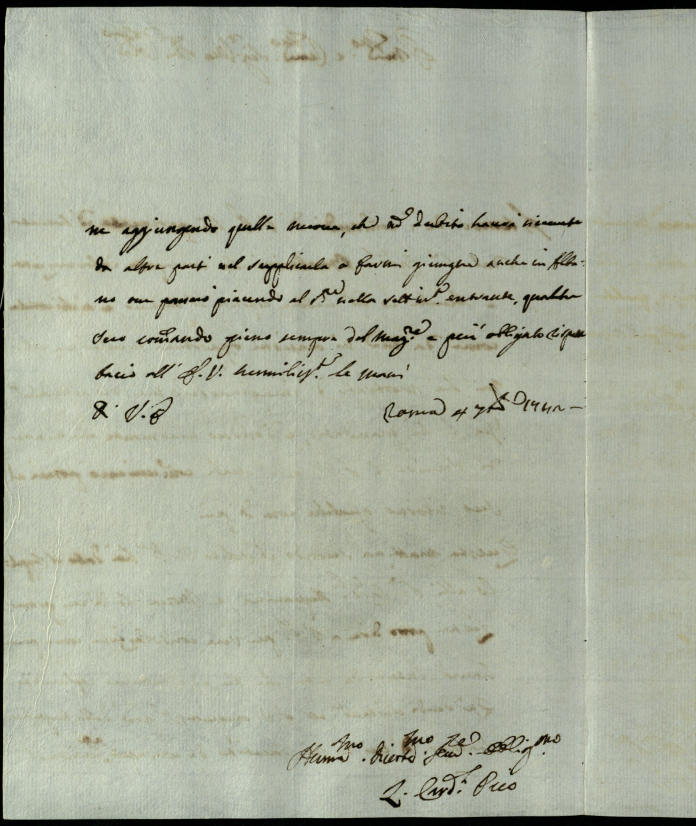 ne aggiungendo quella nuova, che nõ dubito havrà ricevuta
da altre parti nel supplicarla a farmi giungere anche in Alba-
no ove passerò piacendo al Sig.re nella sett.na entrante, qualche
suo comãndo pieno sempre del mag.re e più obligato rispetto
bacio all' E. V. humiliss.e le mani
D. V. E. Roma 4 7bre 1742 —
Humil.mo Divot.mo Ser.re Oblig.mo
L. Card.l Pico